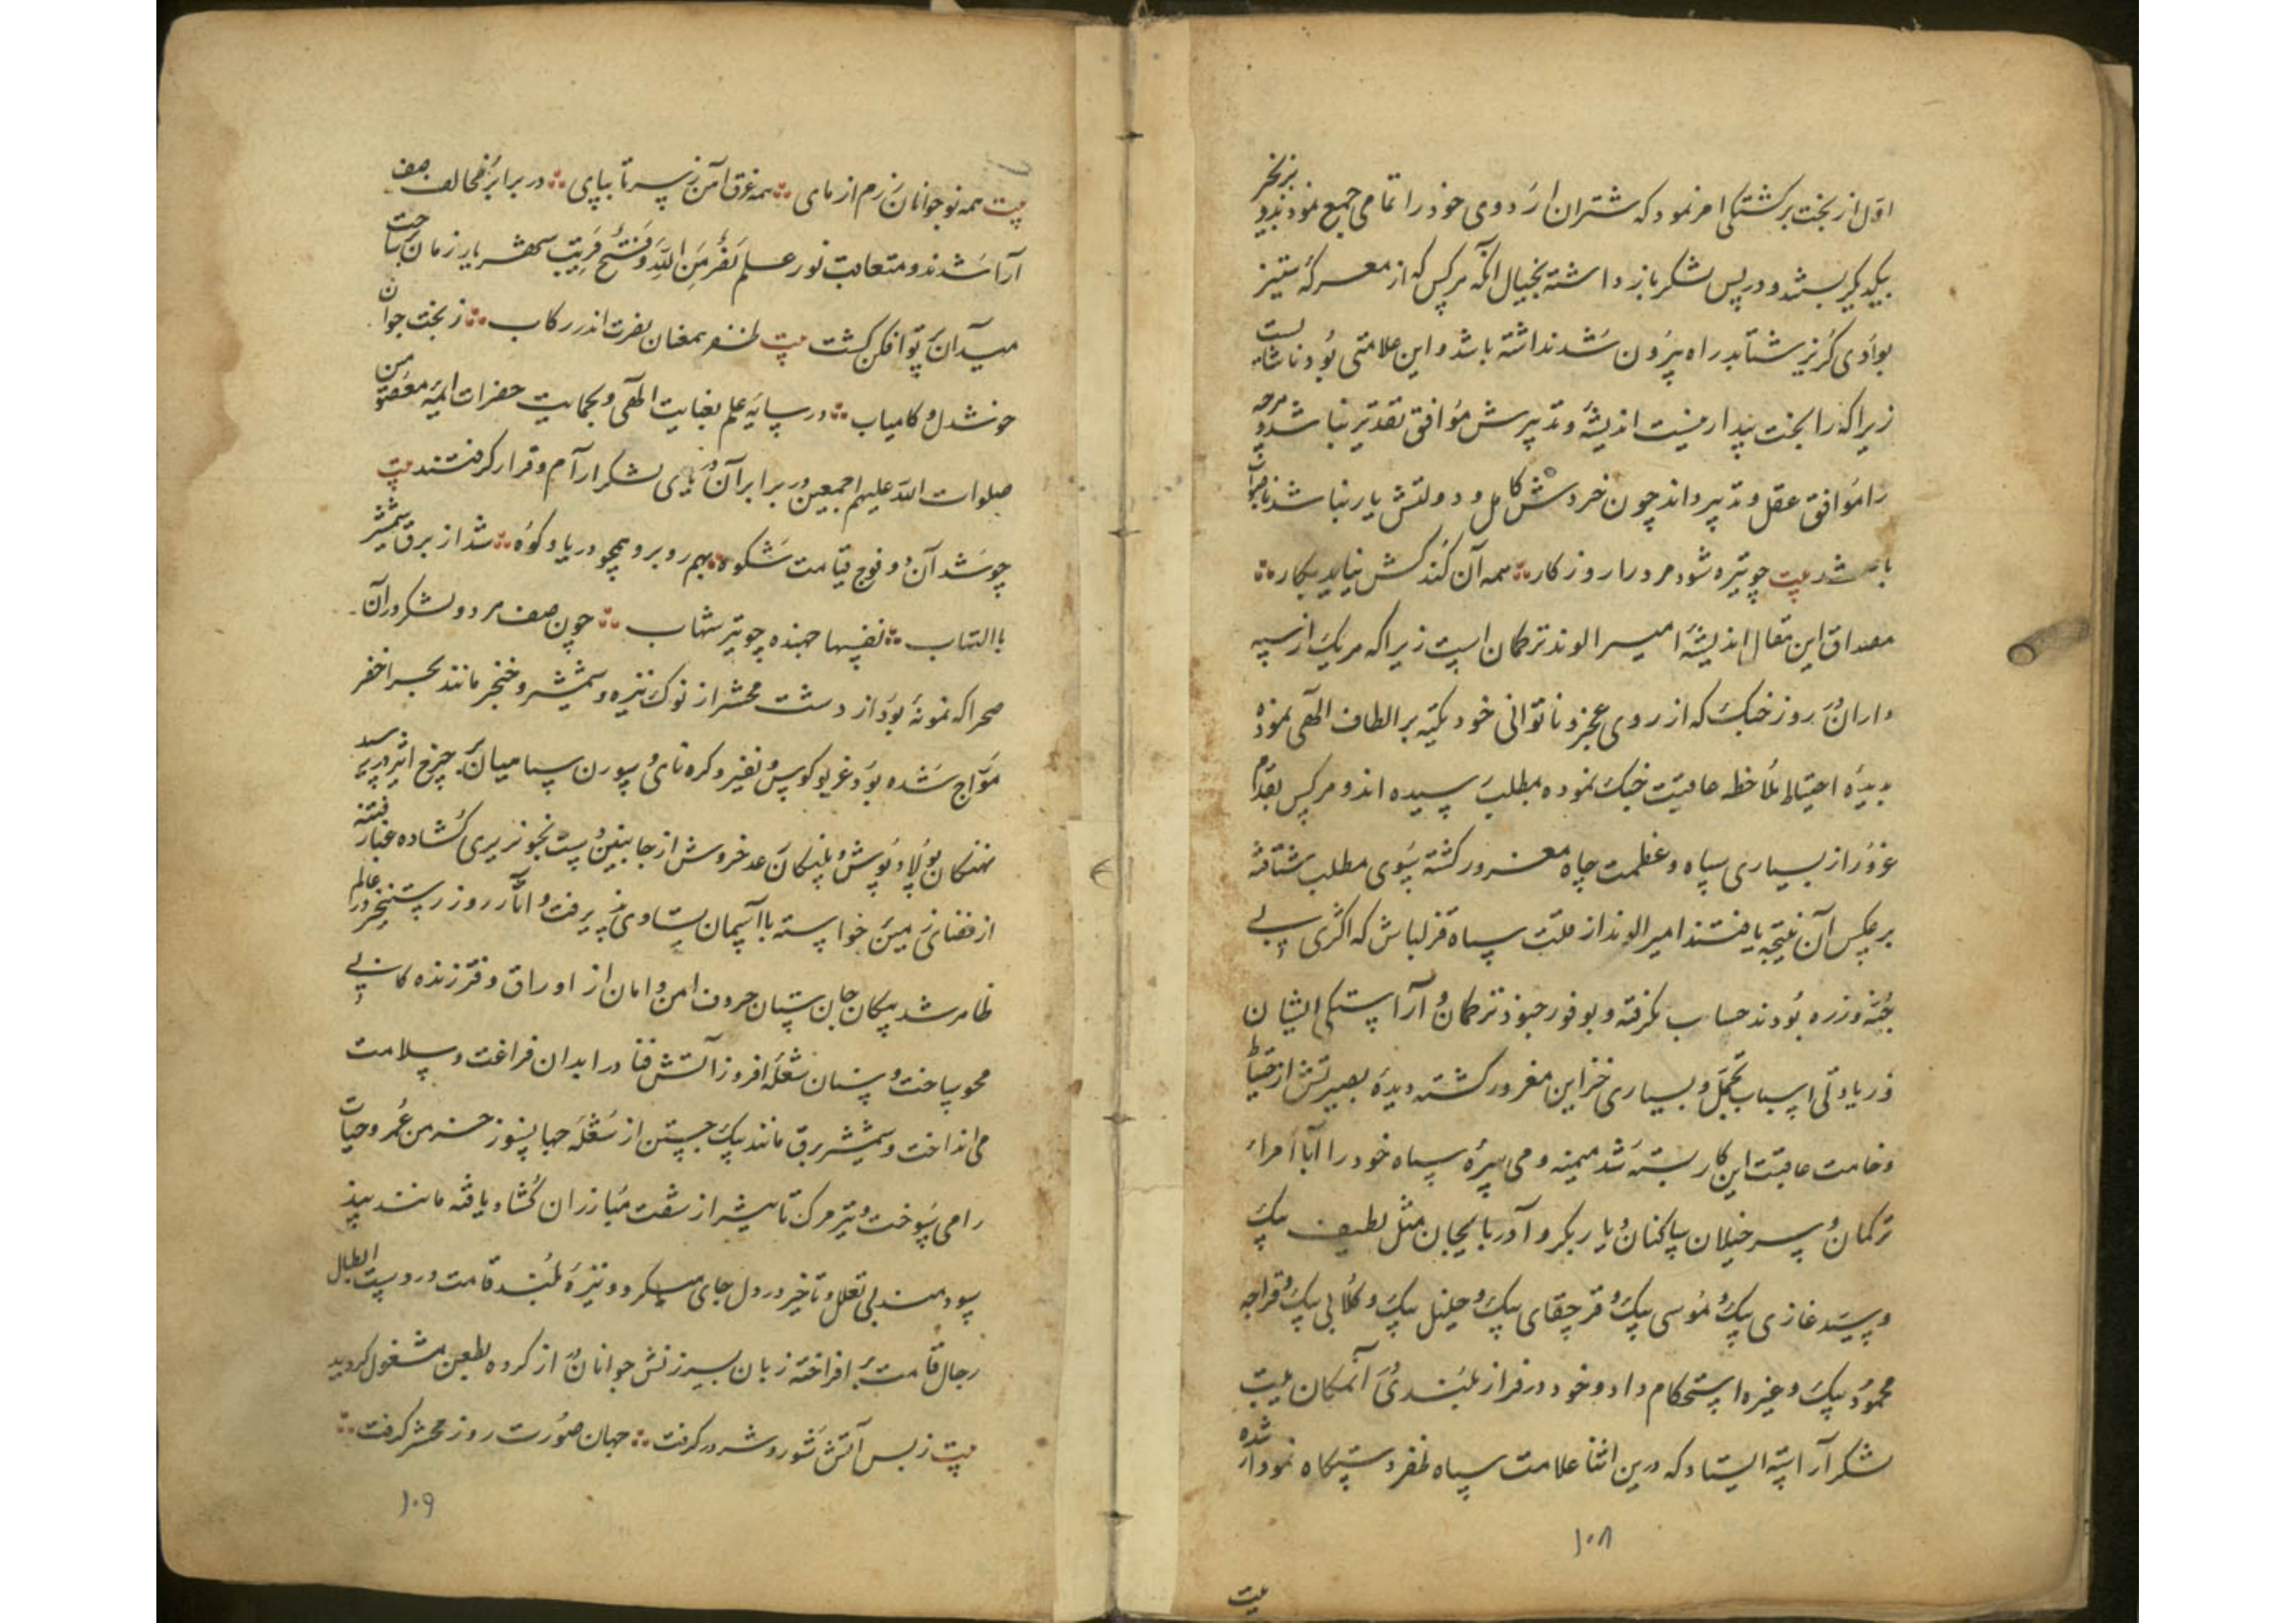 اول از بخت برکشتکی امر نمود که شتران اردوی خود را تمامی جمع نمودند و بزنجیر
بیکدیکر بستند و در پس لشکر باز داشته بخیال آنکه هرکس که از معرکهٔ ستیز
بوادی کریز شتابد راه بیرون شدن نداشته باشد و این علامتی بود ناشایست
زیرا که را بخت بیدار نیست اندیشه و تدبیرش موافق تقدیر نباشد و هرچه
را موافق عقل و تدبیر داند چون خردش کامل و دولتش یار نباشد ناصواب
باشد بیت چو تیره شود مرد را روزکار همه آن کند کش نیاید بکار
مصداق این مقال اندیشهٔ امیر الوند ترکمان است زیرا که هر یک از سپه
داران در روز جنک که از روی عجز و ناتوانی خود تکیه بر الطاف الهی نموده
بدیدهٔ احتیاط ملاحظه عاقبت جنک نموده بمطلب رسیده اند و هرکس بقدم
غرور از بسیاری سپاه و عظمت جاه مغرور کشته بسوی مطلب شتافته
برعکس آن نتیجه یافتند امیر الوند از قلت سپاه قزلباش که اکثری بی
جبه و زره بودند حساب نکرفته و بوفور جنود ترکمان و آراستکی ایشان
و زیادتی اسباب تجمل و بسیاری خزاین مغرور کشته دیدهٔ بصیرتش از احتیاط
وخامت عاقبت این کار بسته شد میمنه و میسرهٔ سپاه خود را با امراء
ترکمان و سرخیلان ساکنان دیاربکر و آذربایجان مثل لطیف بیک
و سید غازی بیک و موسی بیک و قرچقای بیک و خلیل بیک و کلابی بیک و قراجه
محمود بیک و غیره استحکام داد و خود در فراز بلندی آنمکان بیت
لشکر آراسته ایستاد که درین اثنا علامت سپاه ظفر دستکاه نمودار شده
۱۰۸
بیت
بیت همه نوجوانان رزم ازمای همه غرق آهن ز سر تا بپای در برابر مخالف صف
آرا شدند و متعاقب نور علم نصر من الله و فتح قریب بر ساحت
میدان پرتو افکن کشت بیت ظفر همعنان نصرت اندر رکاب ز بخت جوان
خوشدل و کامیاب در سایه علم بعنایت الهی و بحمایت حضرات ایمه معصومین
صلوات الله علیهم اجمعین در برابر آن دریای لشکر آرام و قرار کرفتند بیت
چو شد آن دو فوج قیامت شکوه بهم روبرو همچو دریا و کوه شد از برق شمشیر
با التهاب نفسها جهنده چو تیر شهاب چون صف هر دو لشکر در آن
صحرا که نمونهٔ بود از دشت محشر از نوک نیزه و شمشیر و خنجر مانند بحر اخضر
مواج شده بود غریو کوس و نفیر و کره نای و سورن سپاهیان بچرخ اثیر رسید
نهنکان پولاد پوش و پلنکان رعد خروش از جانبین دست بخونریزی کشاده غبار فتنه
از فضای زمین خواسته با آسمان مساوی پذیرفت و آثار روز رستخیز در عالم
ظاهر شد پیکان جان ستان حروف امن و امان از اوراق دفتر زندهکانی
محو ساخت و سنان شعله افروز آتش فنا در ابدان فراغت و سلامت
می انداخت و شمشیر برق مانند بیک جستن از شعله جهانسوز خرمن عمر و حیات
را می سوخت و تیر مرک تاثیر از شست مبارزان کشاد یافته مانند پند
سودمند بی تعلل و تاخیر در دل جای میکرد و نیزهٔ بلند قامت در دست ابطال
رجال قامت بر افراخته زبان بسرزنش جوانان از کروه بطعن مشغول کردید
بیت ز بس آتش شور و شر در کرفت جهان صورت روز محشر کرفت
۱۰۹